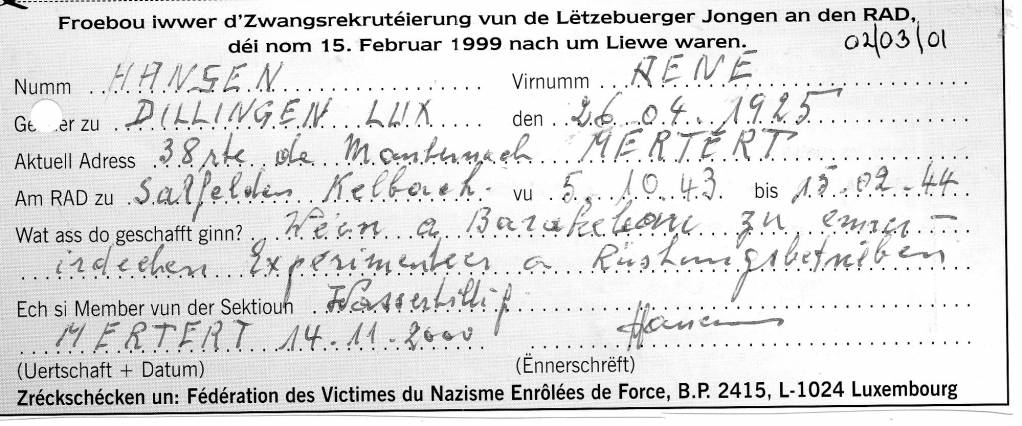 Froebou iwwer d'Zwangsrekrutéierung vun de Lëtzebuerger Jongen an den RAD,
déi nom 15. Februar 1999 nach um Liewe waren.
02/03/01
Numm HANSEN Virnumm RENE
zu DILLINGEN LUX den 26.04.1925
Aktuell Adress 38 rte de Manternach MERTERT
Am RAD zu Salfelden Kelbach. vu 5.10.43. bis 15.02.44.
Wat ass do geschafft ginn? Wéin a Barakebau zu enner-
irdechen Experimenteer a Rüstungsbetrieben
Ech si Member vun der Sektioun Wasserbillig
MERTERT 14-11-2000
(Uertschaft + Datum) (Ënnerschrëft)
Zréckschécken un: Fédération des Victimes du Nazisme Enrôlées de Force, B.P. 2415, L-1024 Luxembourg